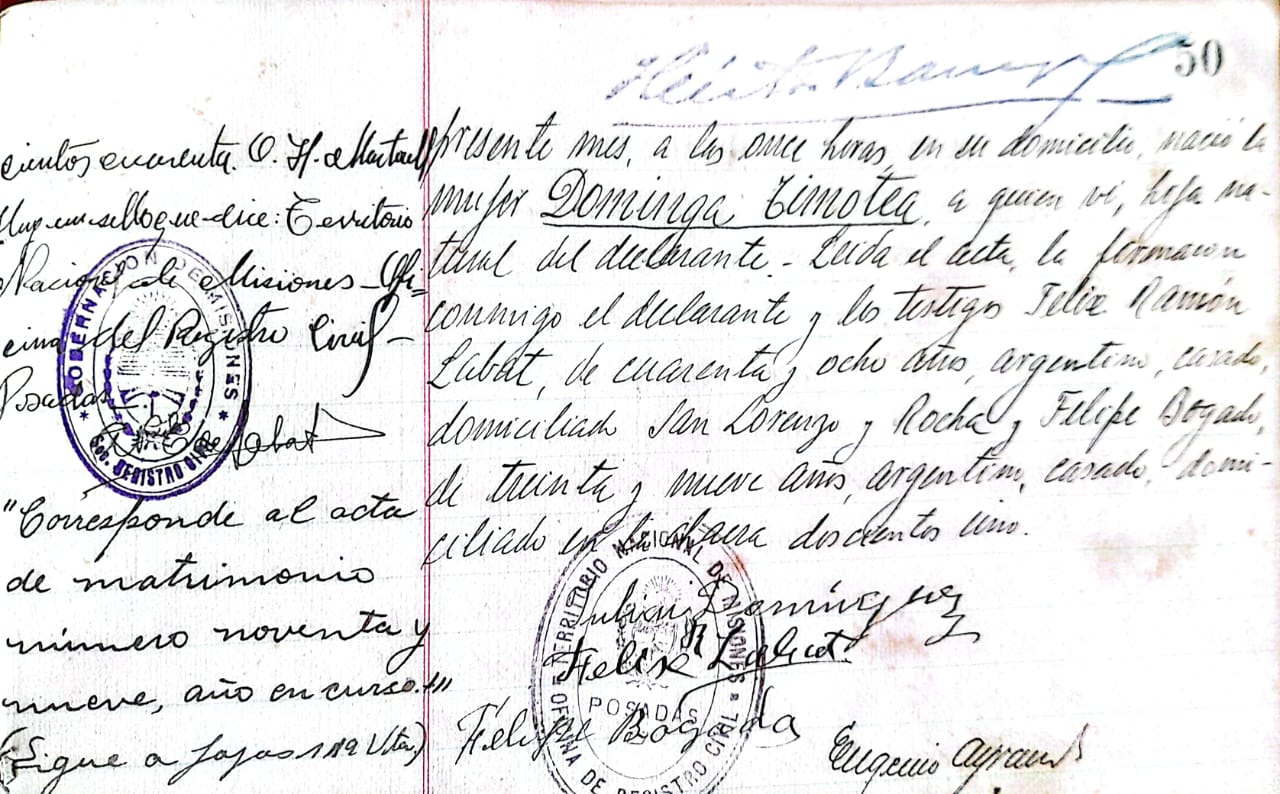 50
cientos cuarenta. O. H. de
Hay un sello que dice: Territorio
Nacional de Misiones - Ofi-
cina del Registro Civil -
Posadas -
Labat
"Corresponde al acta
de matrimonio
número noventa y
nueve, año en curso.
(Sigue a fojas 119 Vta.)
GOBERNACION DE MISIONES
SEC. REGISTRO CIVIL
presente mes, a las once horas, en su domicilio, nació la
mujer Dominga Timotea, a quien vi, hija na-
tural del declarante - Leída el acta, la firmaron
conmigo el declarante y los testigos Felix Ramón
Labat, de cuarenta y ocho años, argentino, casado,
domiciliado San Lorenzo y Rocha y Felipe Bogado,
de treinta y nueve años, argentino, casado, domi-
ciliado en la doscientos uno.
Domínguez
Felix R Labat
Felipe Bogado
Eugenio
TERRITORIO NACIONAL DE MISIONES
POSADAS
OFICINA DE REGISTRO CIVIL